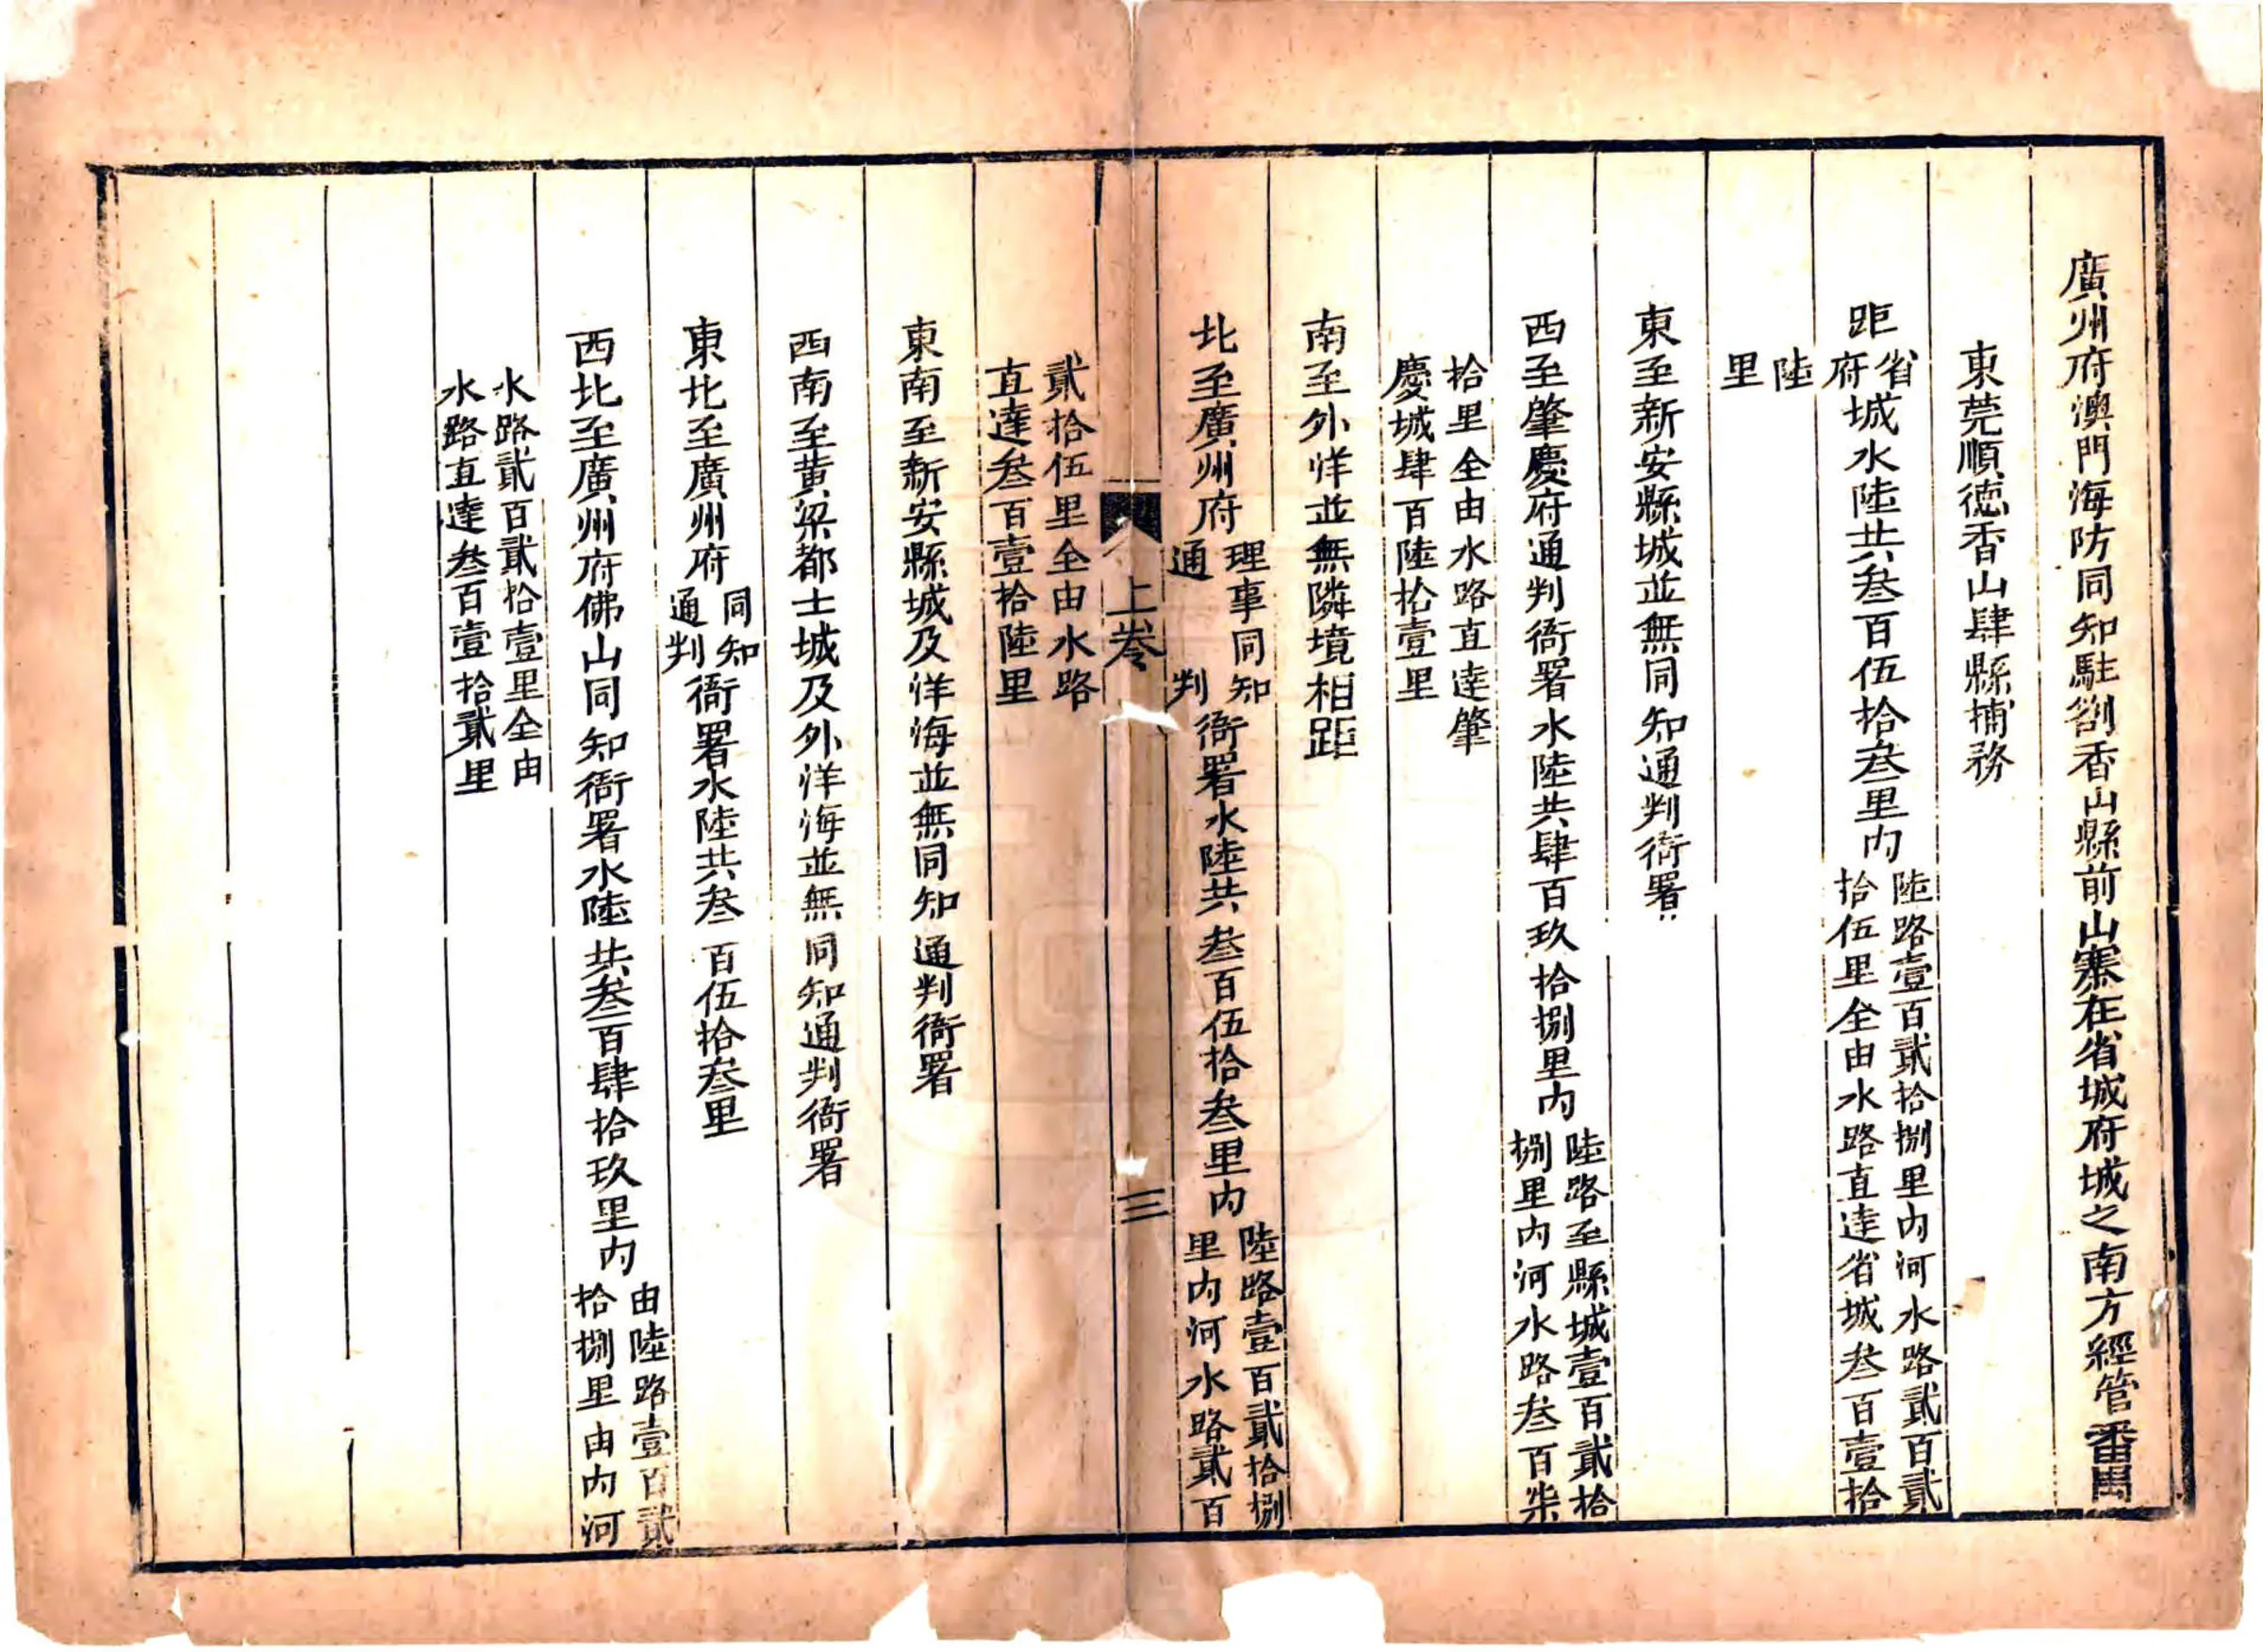 廣州府澳門海防同知駐劄香山縣前山寨在省城府城之南方經管番禺
東莞順德香山肆縣捕務
距省府城水陸共叁百伍拾叁里內陸路壹百貳拾捌里內河水路貳百貳
拾伍里全由水路直達省城叁百壹拾
陸
里
東至新安縣城並無同知通判衙署
西至肇慶府通判衙署水陸共肆百玖拾捌里內陸路至縣城壹百貳拾
捌里內河水路叁百柒
拾里全由水路直達肇
慶城肆百陸拾壹里
南至外洋並無隣境相距
北至廣州府理事同知
通判衙署水陸共叁百伍拾叁里內陸路壹百貳拾捌
里內河水路貳百
上卷
三
貳拾伍里全由水路
直達叁百壹拾陸里
東南至新安縣城及洋海並無同知通判衙署
西南至黃梁都士城及外洋海並無同知通判衙署
東北至廣州府同知
通判衙署水陸共叁百伍拾叁里
西北至廣州府佛山同知衙署水陸共叁百肆拾玖里內由陸路壹百貳
拾捌里由內河
水路貳百貳拾壹里全由
水路直達叁百壹拾貳里